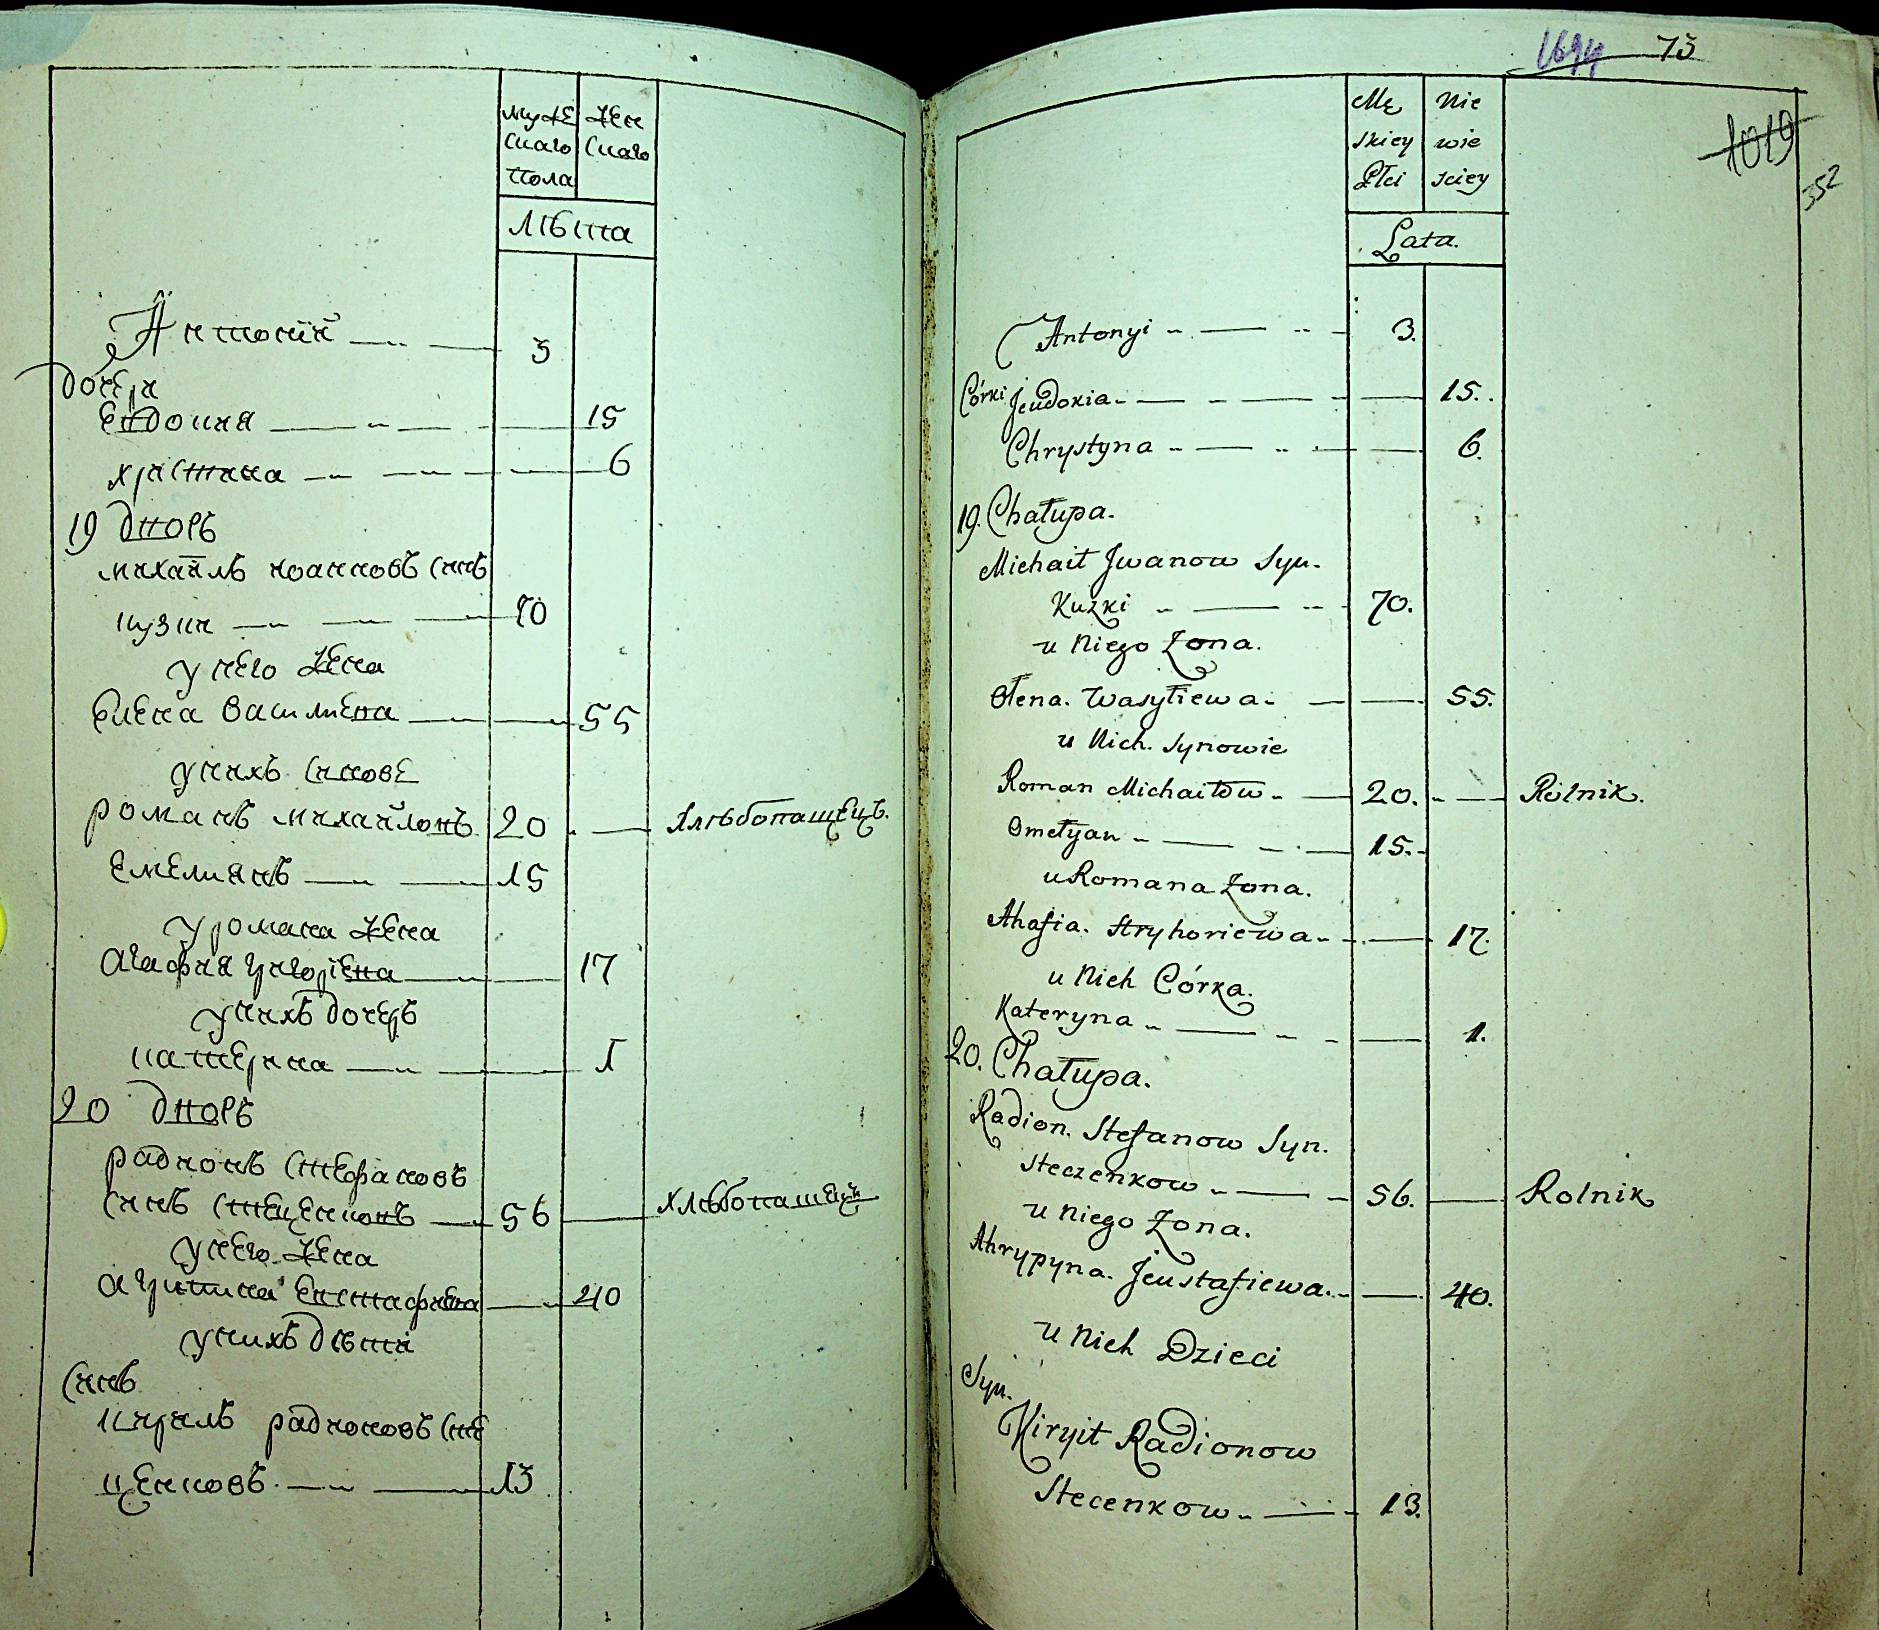 муже
скаго
пола
жен
скаго
лѣта
Антоній 3
дочери
Евдокия 15
христина 6
19 дворъ
михаилъ иоанновъ синъ
кузки 70
у него жена
Елена василиева 55
у нихъ синовЕ
романъ михайловъ 20 хлѣбопашецъ.
Емелиянъ 15
у романа жена
агафия григориева 17
у нихъ дочеръ
катерина 1
20 дворъ
радионъ стефановъ
синъ стеценковъ 56 хлѣбопашецъ
у него жена
агрипина Евстафиева 40
у нихъ дѣти
синъ
кирилъ радионовъ сте
ценковъ 13
1694 73
1019
352
Mę
skiey
Płci
Nie
wie
sciey
Lata.
Antonyi 3.
Córki Jeudokia 15.
Chrystyna 6.
19. Chałupa.
Michaił Jwanow Syn.
Kuzki 70.
u Niego Zona.
Ołena. Wasyliewa 55.
u Nich. Synowie
Roman Michaiłow 20. Rolnik.
Omełyan 15.
u Romana Zona.
Ahafia. Hryhoriewa 17.
u Nich Córka.
Kateryna 1.
20. Chałupa.
Radion. Stefanow Syn.
Steczenkow 56. Rolnik
u Niego Zona.
Ahrypyna. Jeustafiewa 40.
u Nich Dzieci
Syn.
Kiryił Radionow
Stecenkow 13.